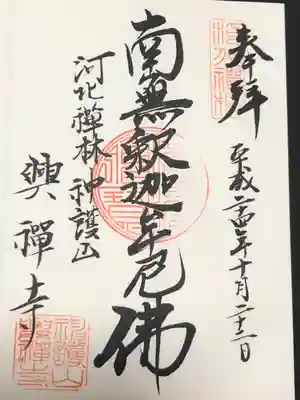 奉拝
平成二四年十月二十二日
南無釈迦牟尼佛
河北禅林 神護山
興禅寺